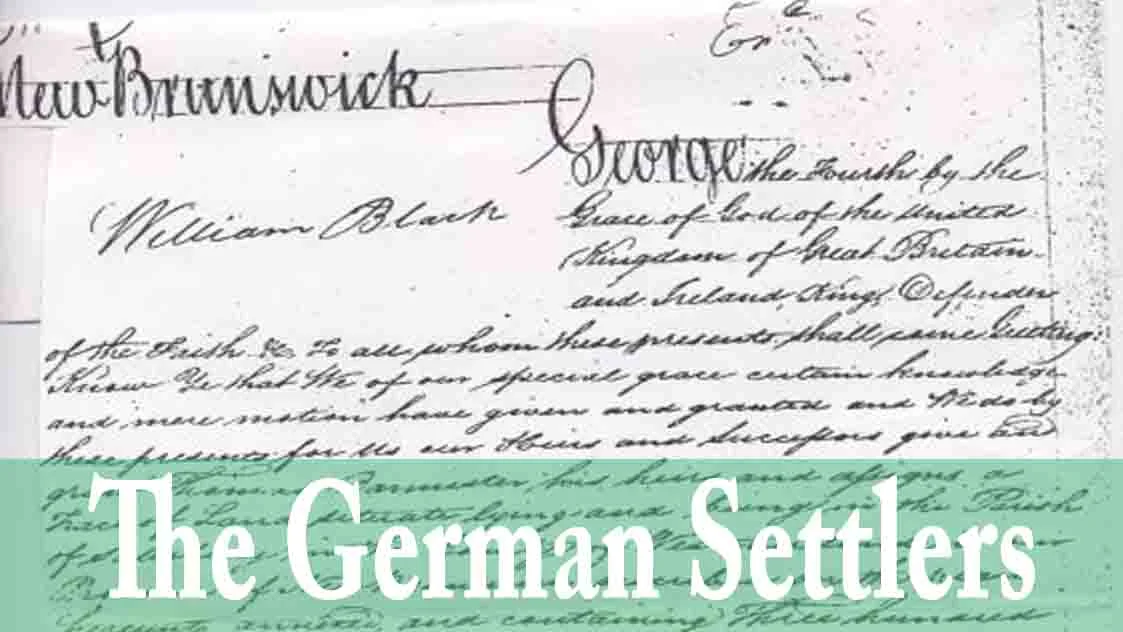 New Brunswick
George the Fourth by the
William Black
Grace of God of the United
Kingdom of Great Britain
and Ireland King, Defender
of the Faith &c To all whom these presents shall come Greeting:
Know Ye that We of our special grace certain knowledge
and mere motion have given and granted and We do by
these presents for Us our Heirs and Successors give and
his heirs and assigns a
Tract of Land situate lying and being in the Parish
of
and containing Three hundred
The German Settlers